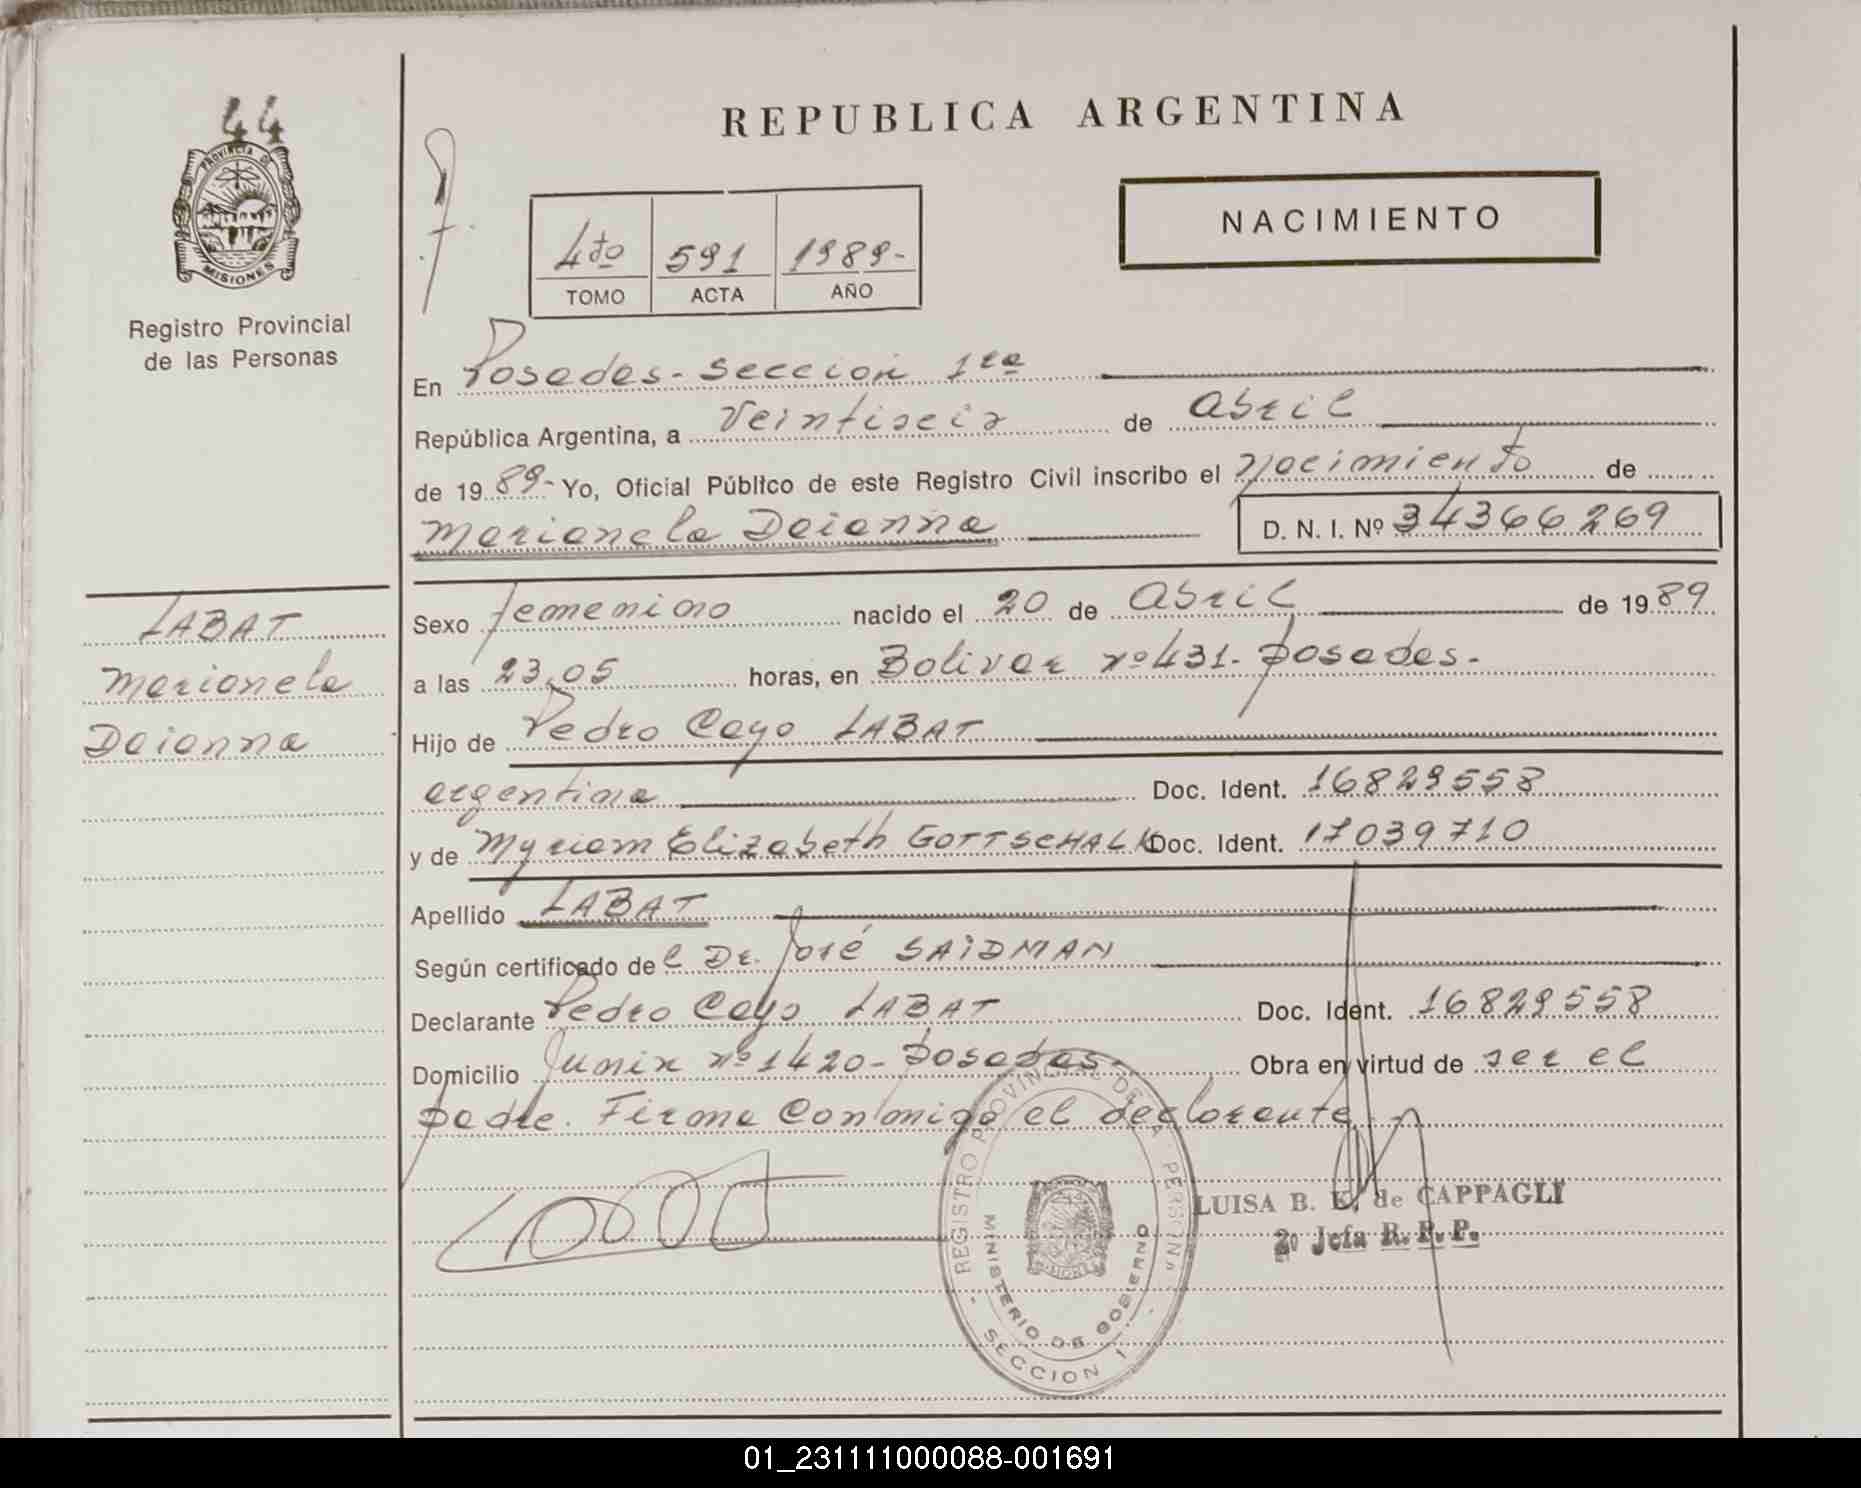 44
PROVINCIA DE
MISIONES
Registro Provincial
de las Personas
LABAT
Marianela
Daianna
REPUBLICA ARGENTINA
NACIMIENTO
4to 591 1989-
TOMO ACTA AÑO
En Posadas- Sección 1ra
República Argentina, a Veintiseis de Abril
de 1989- Yo, Oficial Público de este Registro Civil inscribo el Nacimiento de
Marianela Daianna D. N. I. Nº 34366269
Sexo femenino nacido el 20 de Abril de 1989
a las 23,05 horas, en Bolivar nº 431- Posadas-
Hijo de Pedro Cayo LABAT
argentina Doc. Ident. 16829558
y de Myriam Elizabeth GOTTSCHALK Doc. Ident. 17039710
Apellido LABAT
Según certificado del Dr. José SAIDMAN
Declarante Pedro Cayo LABAT Doc. Ident. 16829558
Domicilio Junin nº 1420- Posadas- Obra en virtud de ser el
padre. Firma conmigo el declarante.
REGISTRO PROVINCIAL DE LA PERSONA
MINISTERIO DE GOBIERNO
- SECCION 1 -
LUISA B. de CAPPAGLI
2º Jefa R. P. P.
01_231111000088-001691